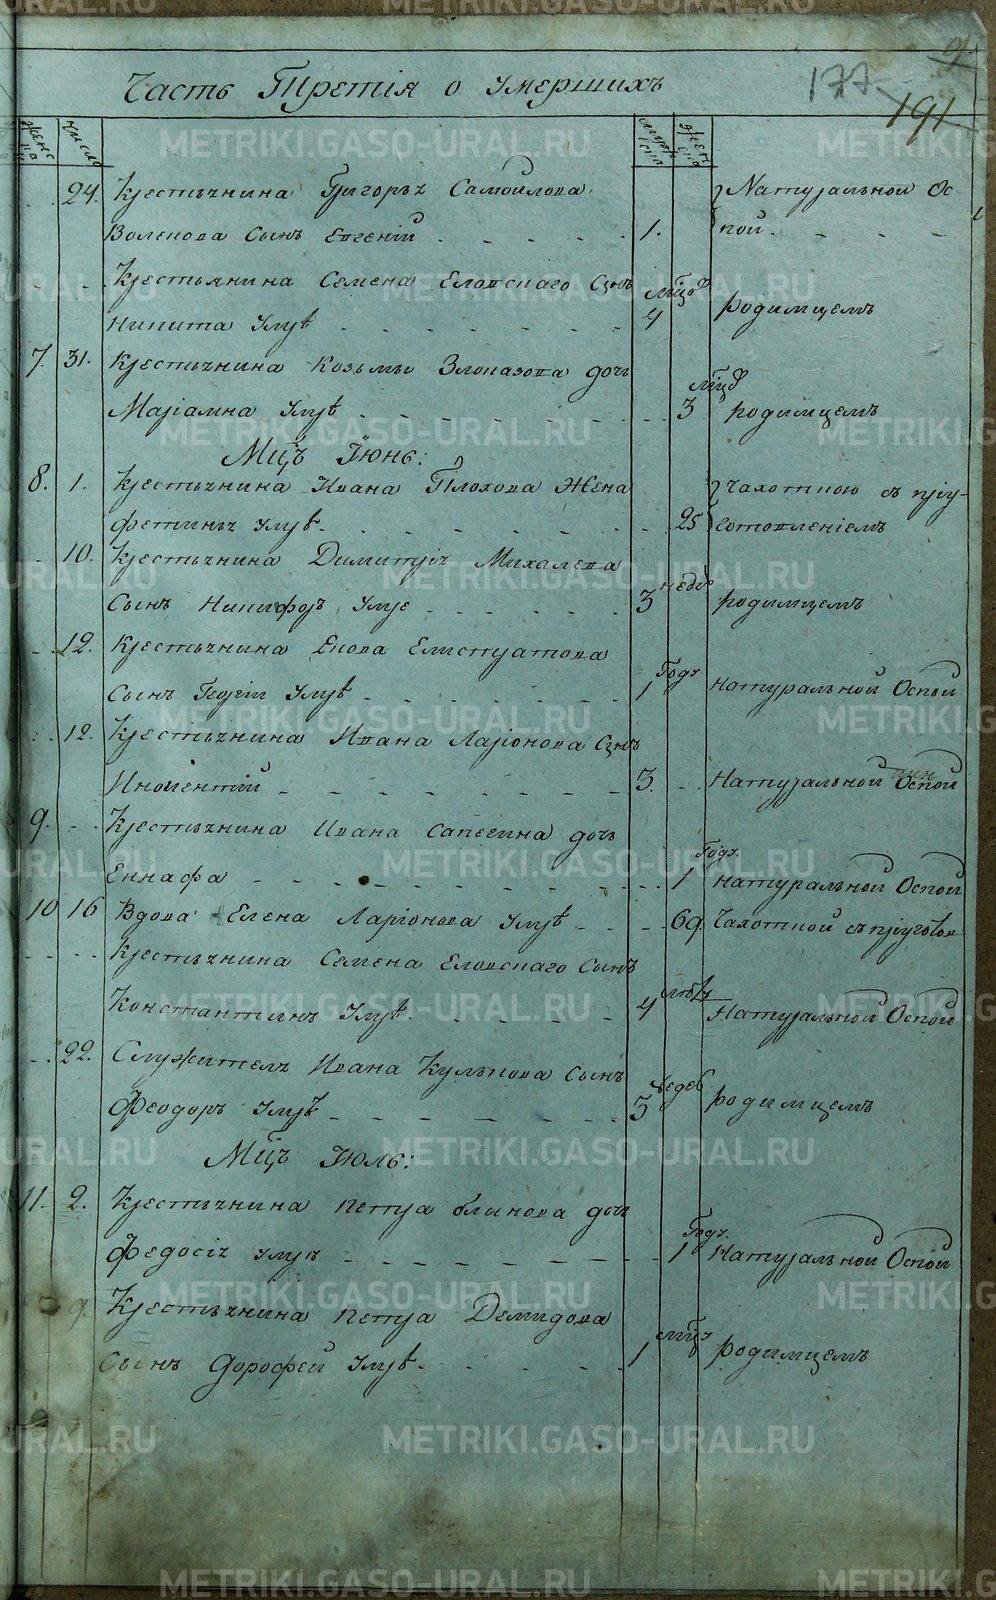 Часть Третія о умершихъ
177
191
9
женска числа мужеска женска
24. Крестьянина Григорья Самоилова Натуральной Ос
Воленова Сынъ Евгеній 1. пой
Крестьянина Семена Еловскаго Сынъ мѣцов
Никита Умре 4 родимцемъ
7. 31. Крестьянина Козьмы Злоказова дочь мѣцов
Маріамна Умре 3 родимцемъ
Мцъ Іюнь:
8. 1. Крестьянина Ивана Плохова Жена Чахотною съ
Фетинья Умре 25
10. Крестьянина Димитрія Михалева
Сынъ Никифоръ Умре 3 недѣ родимцемъ
12. Крестьянина Якова Елистратова
Сынъ Георгій Умре 1 Годъ Натуральной Оспой
12. Крестьянина Ивана Ларіонова Сынъ
Инокентій 3. Натуральной Оспой
9. Крестьянина Ивана Сапегина дочь
Еннафа 1 Годъ Натуральной Оспой
10 16 Вдова Елена Ларіонова Умре 69. Чахотной съ
Крестьянина Семена Еловскаго Сынъ
Константинъ Умре 4 лѣтъ Натуральной Оспой
22. Служителя Ивана Кулькова Сынъ
Феодоръ Умре 3 недѣ родимцемъ
Мцъ Іюль:
11. 2. Крестьянина Петра Блинова дочь
Федосія Умре 1 Годъ Натуральной Оспой
9. Крестьянина Петра Демидова
Сынъ Дорофей Умре 1 мѣцъ родимцемъ
METRIKI.GASO-URAL.RU